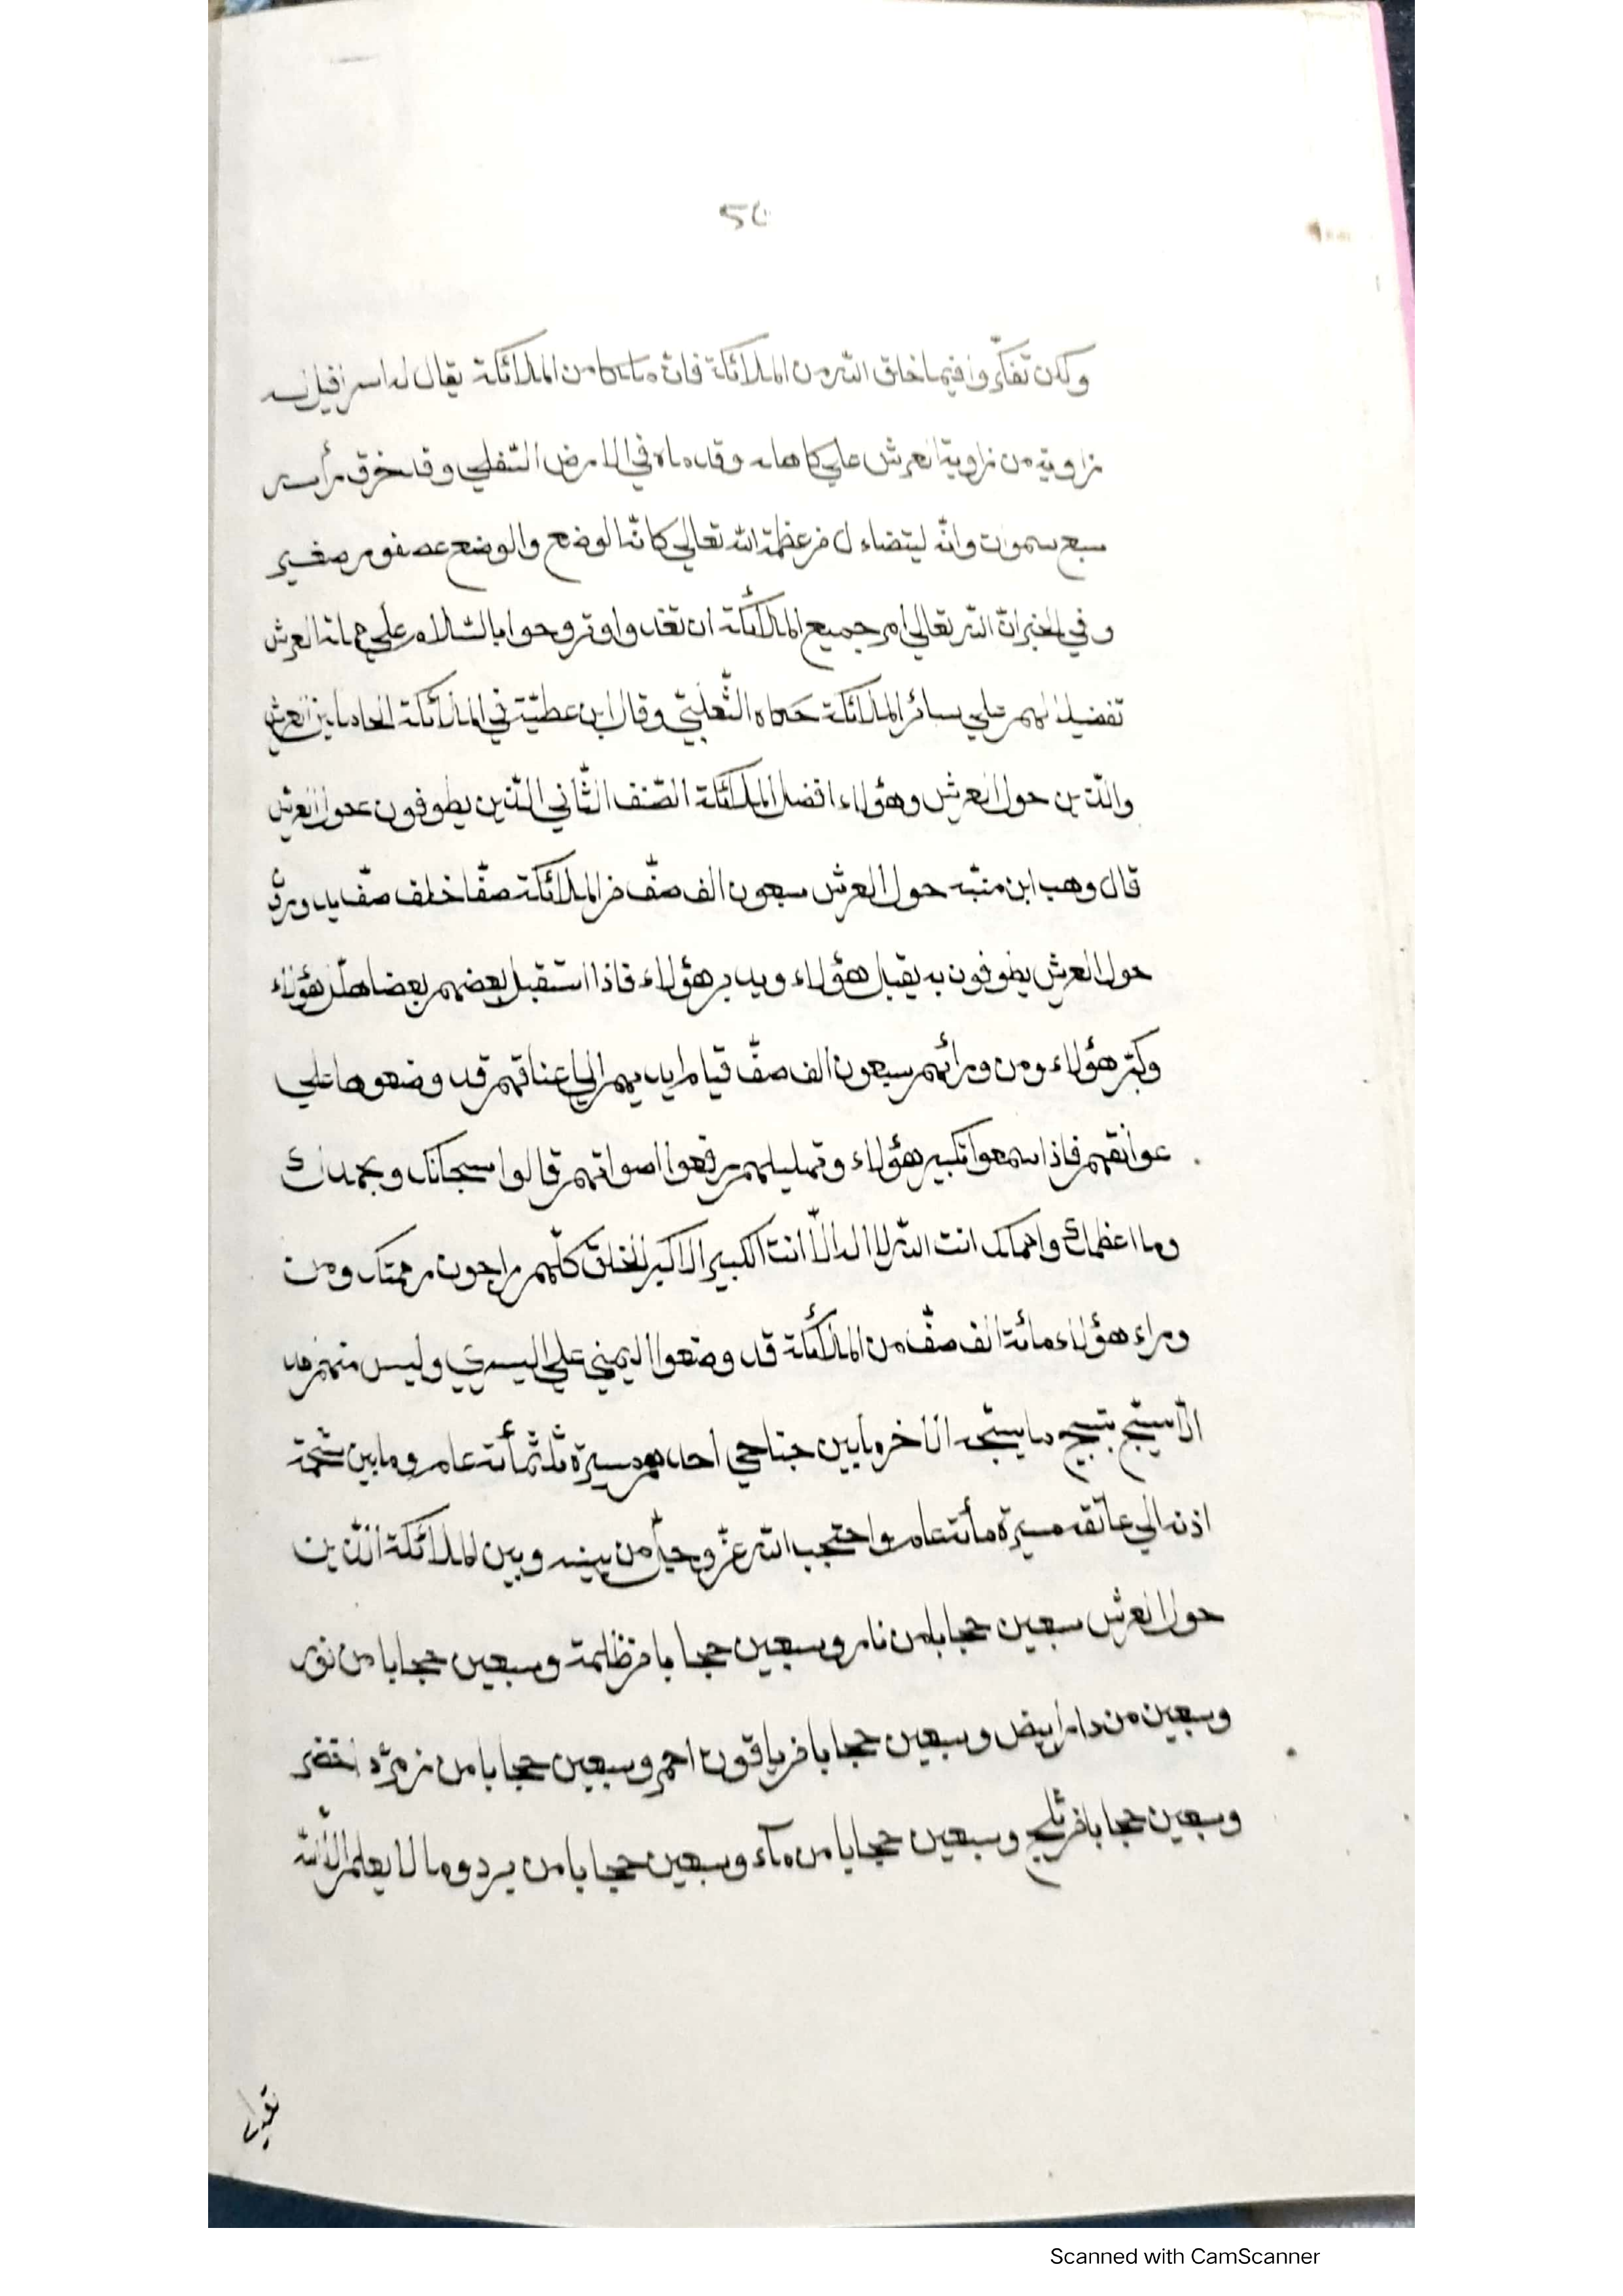 ولكن تفكّروا فيما خلق اللّه من الملائكة فانّ ملكا من الملائكة يقال له اسرافيل له
زاوية من زاوية العرش علي كاهله وقدماه في الارض السّفلي وقد خرق رأسه
سبع سموات وانّه ليتضاءل من عظمة الله تعالي كانّه الوضع والوضع عصفور صغير
وفي الخبر انّ اللّه تعالي امر جميع الملائكة ان تغدوا وتروحوا بالسّلام علي حملة العرش
تفضيلا لهم علي سائر الملائكة حكاه الثّعلبيّ وقال ابن عطيّة في الملائكة الحاملين العرش
والّذين حول العرش وهؤلاء افضل الملائكة الصّنف الثّاني الّذين يطوفون حول العرش
قال وهب ابن منبّه حول العرش سبعون الف صفّ من الملائكة صفّا خلف صفّ يدورون
حول العرش يطوفون به يقبل هؤلاء ويدبر هؤلاء فاذا استقبل بعضهم بعضا هلّل هؤلاء
وكبّر هؤلاء ومن ورائهم سبعون الف صفّ قيام ايديهم الي اعناقهم قد وضعوها علي
عواتقهم فاذا سمعوا تكبير هؤلاء وتهليلهم رفعوا اصواتهم قالوا سبحانك وبحمدك
وما اعظمك واحملك انت اللّه لا اله الّا انت الكبير الاكبر الخلق كلّهم راجون رحمتك ومن
وراء هؤلاء مائة الف صفّ من الملائكة قد وضعوا اليمني علي اليسري وليس منهم
الّا يسبّح بتسبيح ما يسبّحه الاخر ما بين جناحي احدهم مسيرة ثلثمأئة عام وما بين شحمة
اذنه الي عاتقه مسيرة مأئة عام واحتجب اللّه عزّ وجلّ من بينه وبين الملائكة الّذين
حول العرش سبعين حجابا من نار وسبعين حجابا من ظلمة وسبعين حجابا من نور
وسبعين من دار ابيض وسبعين حجابا من ياقوت احمر وسبعين حجابا من زمرّد اخضر
وسبعين حجابا من ثلج وسبعين حجابا من مآء وسبعين حجابا من برد وما لا يعلم الّا اللّه
Scanned with CamScanner